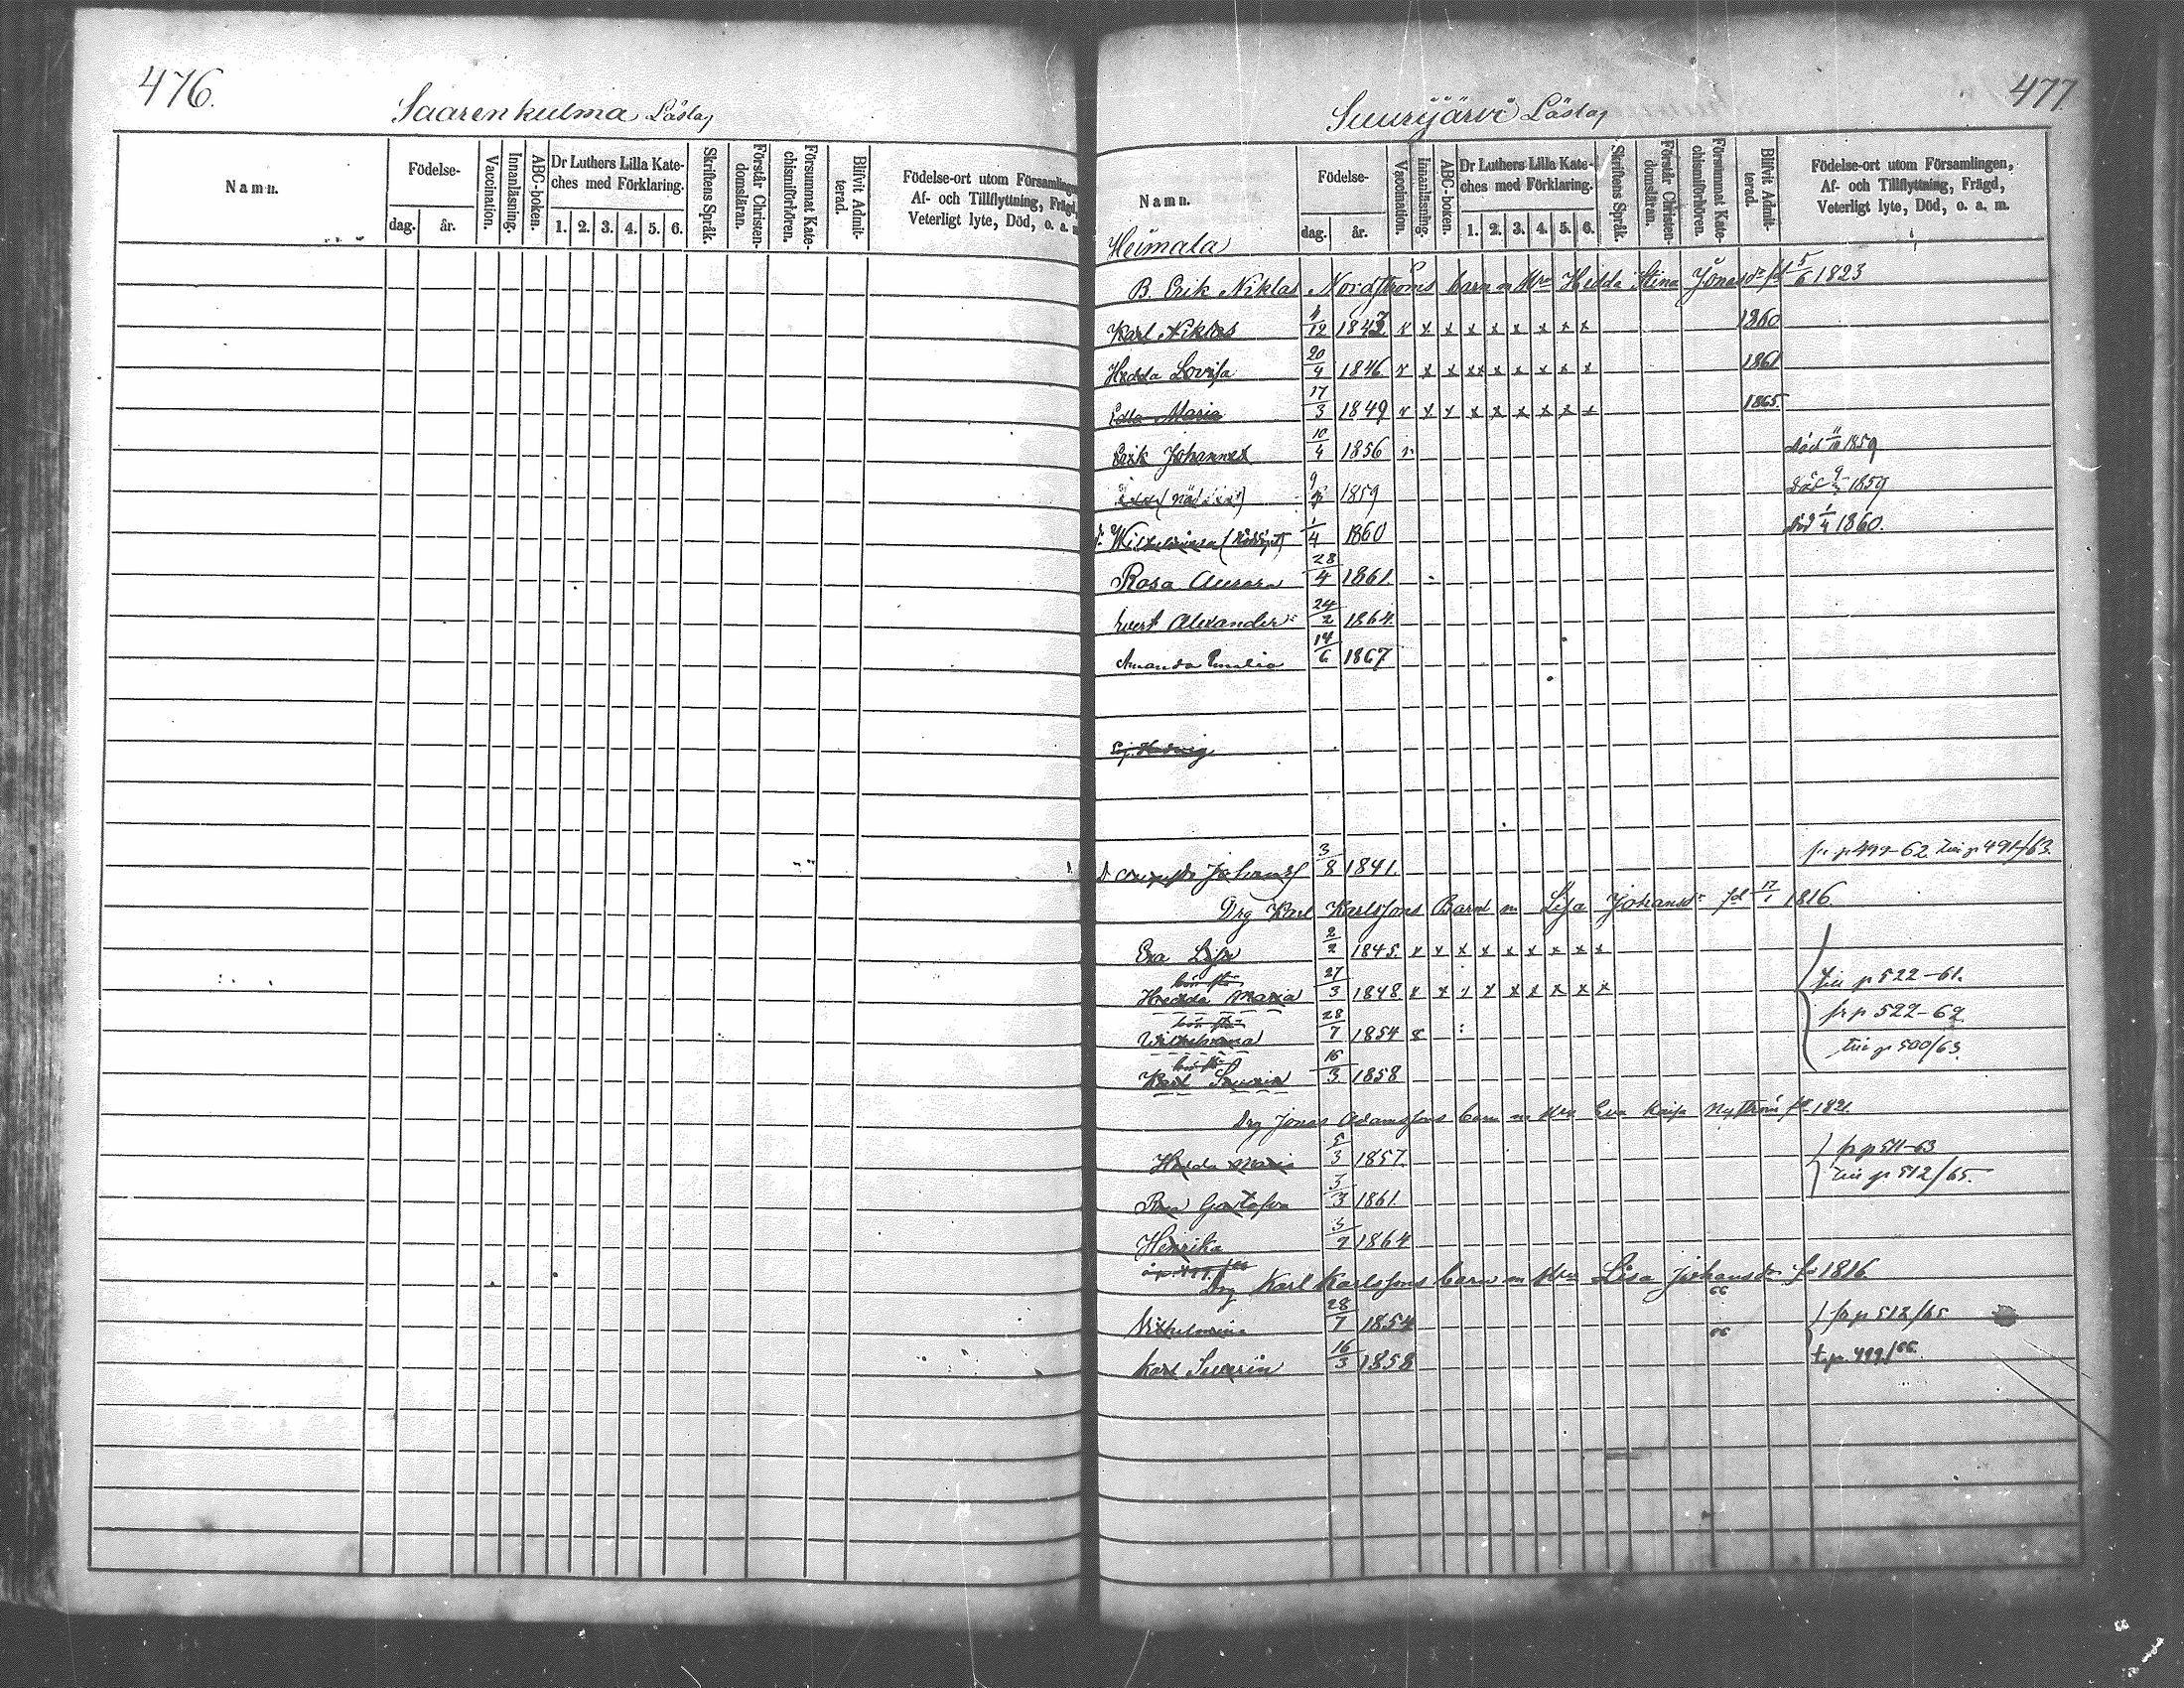 476.
Saarenkulma Läslag
Namn.
Födelse-
dag.
år.
Vaccination.
Innanläsning.
ABC-boken.
Dr Luthers Lilla Kate-
ches med Förklaring.
1. 2. 3. 4. 5. 6.
Skriftens Språk.
Förstår Christen-
domsläran.
Försummat Kate-
chismiförhören.
Blifvit Admit-
terad.
Födelse-ort utom Församlingen,
Af- och Tillflyttning, Frägd,
Veterligt lyte, Död, o. a. m.
477.
Suurijärvi Läslag
Namn.
Födelse-
dag.
år.
Vaccination.
Innanläsning.
ABC-boken.
Dr Luthers Lilla Kate-
ches med Förklaring.
1. 2. 3. 4. 5. 6.
Skriftens Språk.
Förstår Christen-
domsläran.
Försummat Kate-
chismiförhören.
Blifvit Admit-
terad.
Födelse-ort utom Församlingen,
Af- och Tillflyttning, Frägd,
Veterligt lyte, Död, o. a. m.
Heimala
B. Erik Niklas Nordströms barn m Hedda Stina Jonasdr fd 5/6 1823
Karl Niklas 1843 x x x x x x x x x 1860
Hedda Lovisa 20/4 1846 x x x xx x x x x x 1861
Edla Maria 17/3 1849 x x x x x x x x x 1865.
Erik Johannes 10/4 1856 död 1859
1859 död 1859
Wilhelmina (nöddöpt) 1/4 1860 död 1/4 1860.
Rosa Aurora 28/4 1861.
Evert Alexander 24/2 1864.
Amanda Emilia 14/6 1867
Hedwig
Johansd 3/8 1841. fr p 499-62. till p 491/63.
Drg Karl Karlssons Barn m Lisa Johansdr fd 17/1 1816
Eva Lisa 2/2 1845. x x x x x x x x x
Hedda Maria 27/3 1848 x x x x x x x x x till p 522-61.
fr p 522-62
Wilhelmina 28/7 1854 till p 500/63.
Karl Severin 16/3 1858
Drg Jonas Adamssons barn m Eva Kaisa Nyström fd 1821.
Hedda Maria 5/3 1857. fr p 511-63
till p 512/65.
Gustafva 3/3 1861.
Henrika 3/2 1864
Drg Karl Karlssons barn m Lisa Johansdr fd 1816.
66
Vilhelmina 28/7 1854 fr p 512/65
66
Karl Severin 16/3 1858 t. p. 499/66